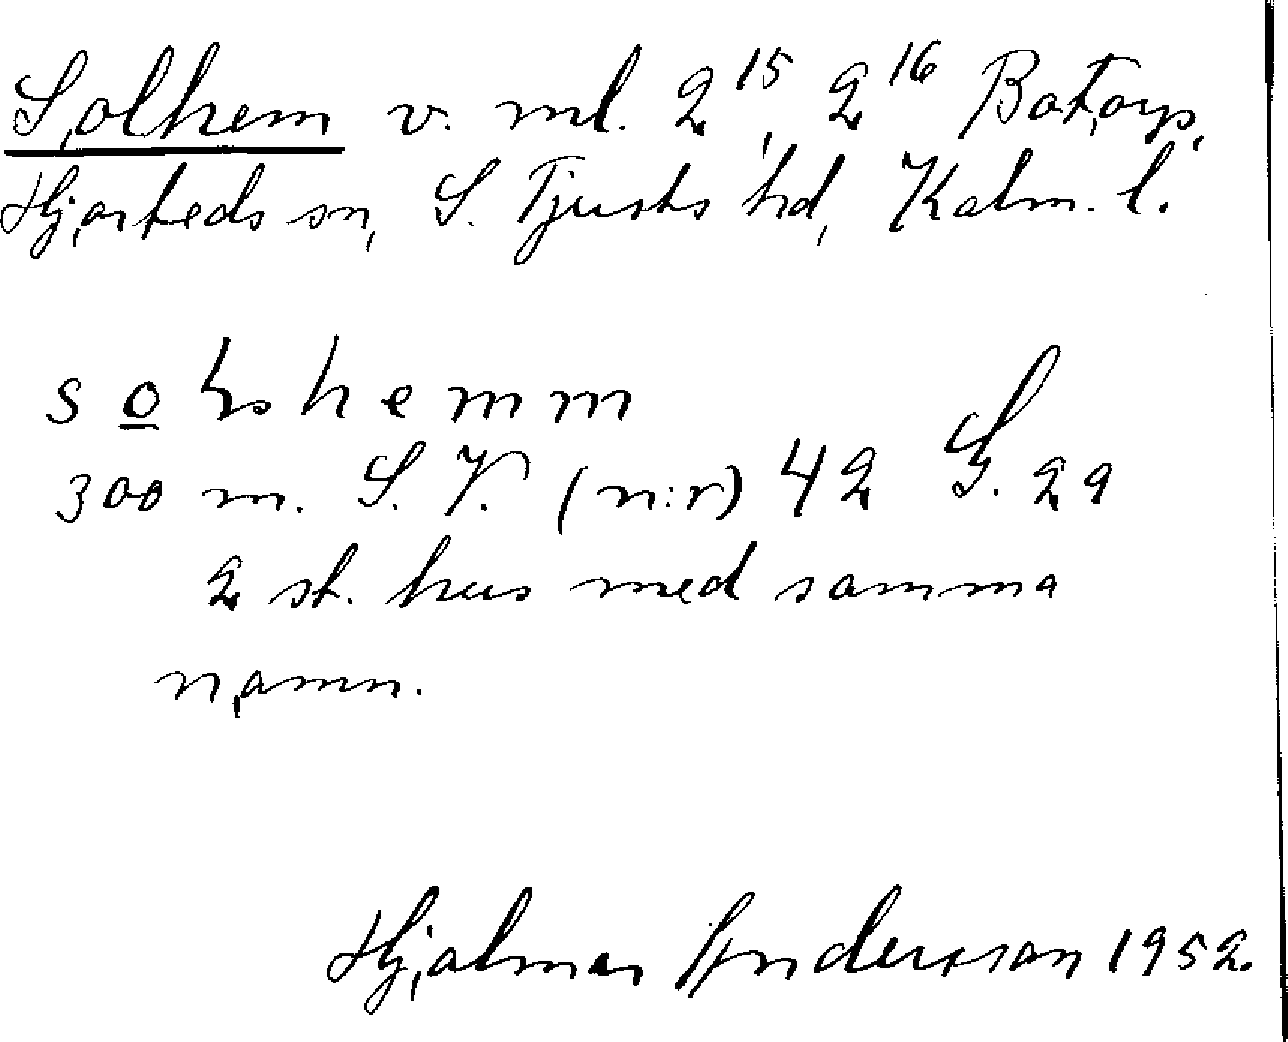 Solhem v. ml. 2¹⁵, 2¹⁶ Batorp,
Hjorteds sn, S. Tjusts hd, Kalm. l.
hemm
300 m. S. V. (n:r) 42 G. 2a
2 st. hus med samma
namn.
Hjalmar Andersson 1952.